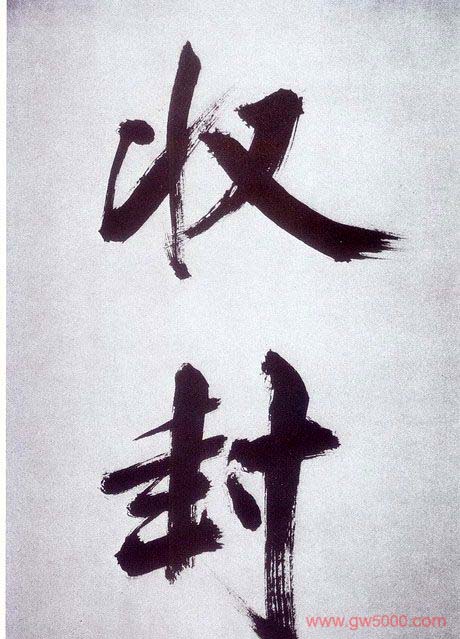 收
封
www.gw5000.com